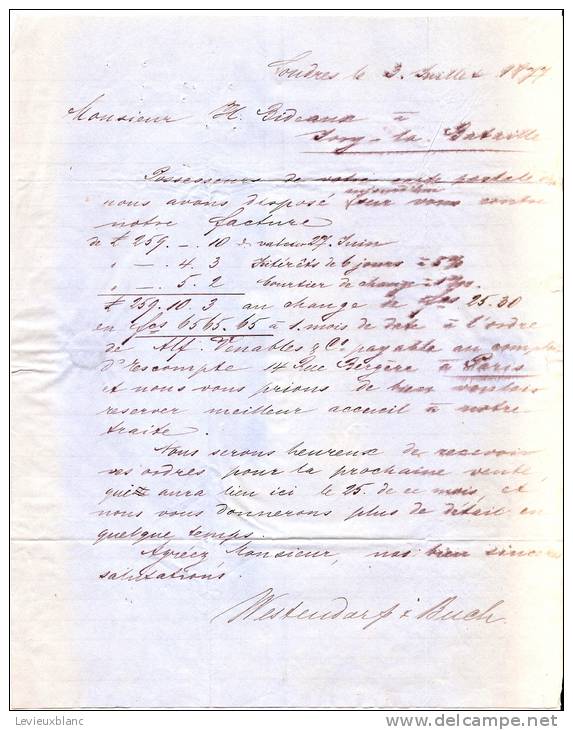 Londres le 3. Juillet 1877
Monsieur H. Bideaux à
Ivry-la-Bataille
Possesseurs de votre carte postale
aujourd'hui
nous avons disposé sur vous contre
notre facture
de £ 259. — . 10 valeur 27. Juin
" — . 4. 3 Intérêts de 6 jours à 5%
" — . 5. 2 Courtier de change
£ 259. 10. 3 au change de fcs 25.30
en fcs 6565.65 à 1. mois de date à l'ordre
de Alf. Venables & Co. payable au comptoir
d'Escompte 14 Rue Bergère à Paris
et nous vous prions de bien vouloir
reserver meilleur accueil à notre
traite.
Nous serons heureux de recevoir
vos ordres pour la prochaine vente,
qui aura lieu ici le 25. de ce mois, et
nous vous donnerons plus de détail en
quelque temps.
Agréez Monsieur, nos bien sincères
salutations.
Westendarp & Buch.
Levieuxblanc
www.delcampe.net